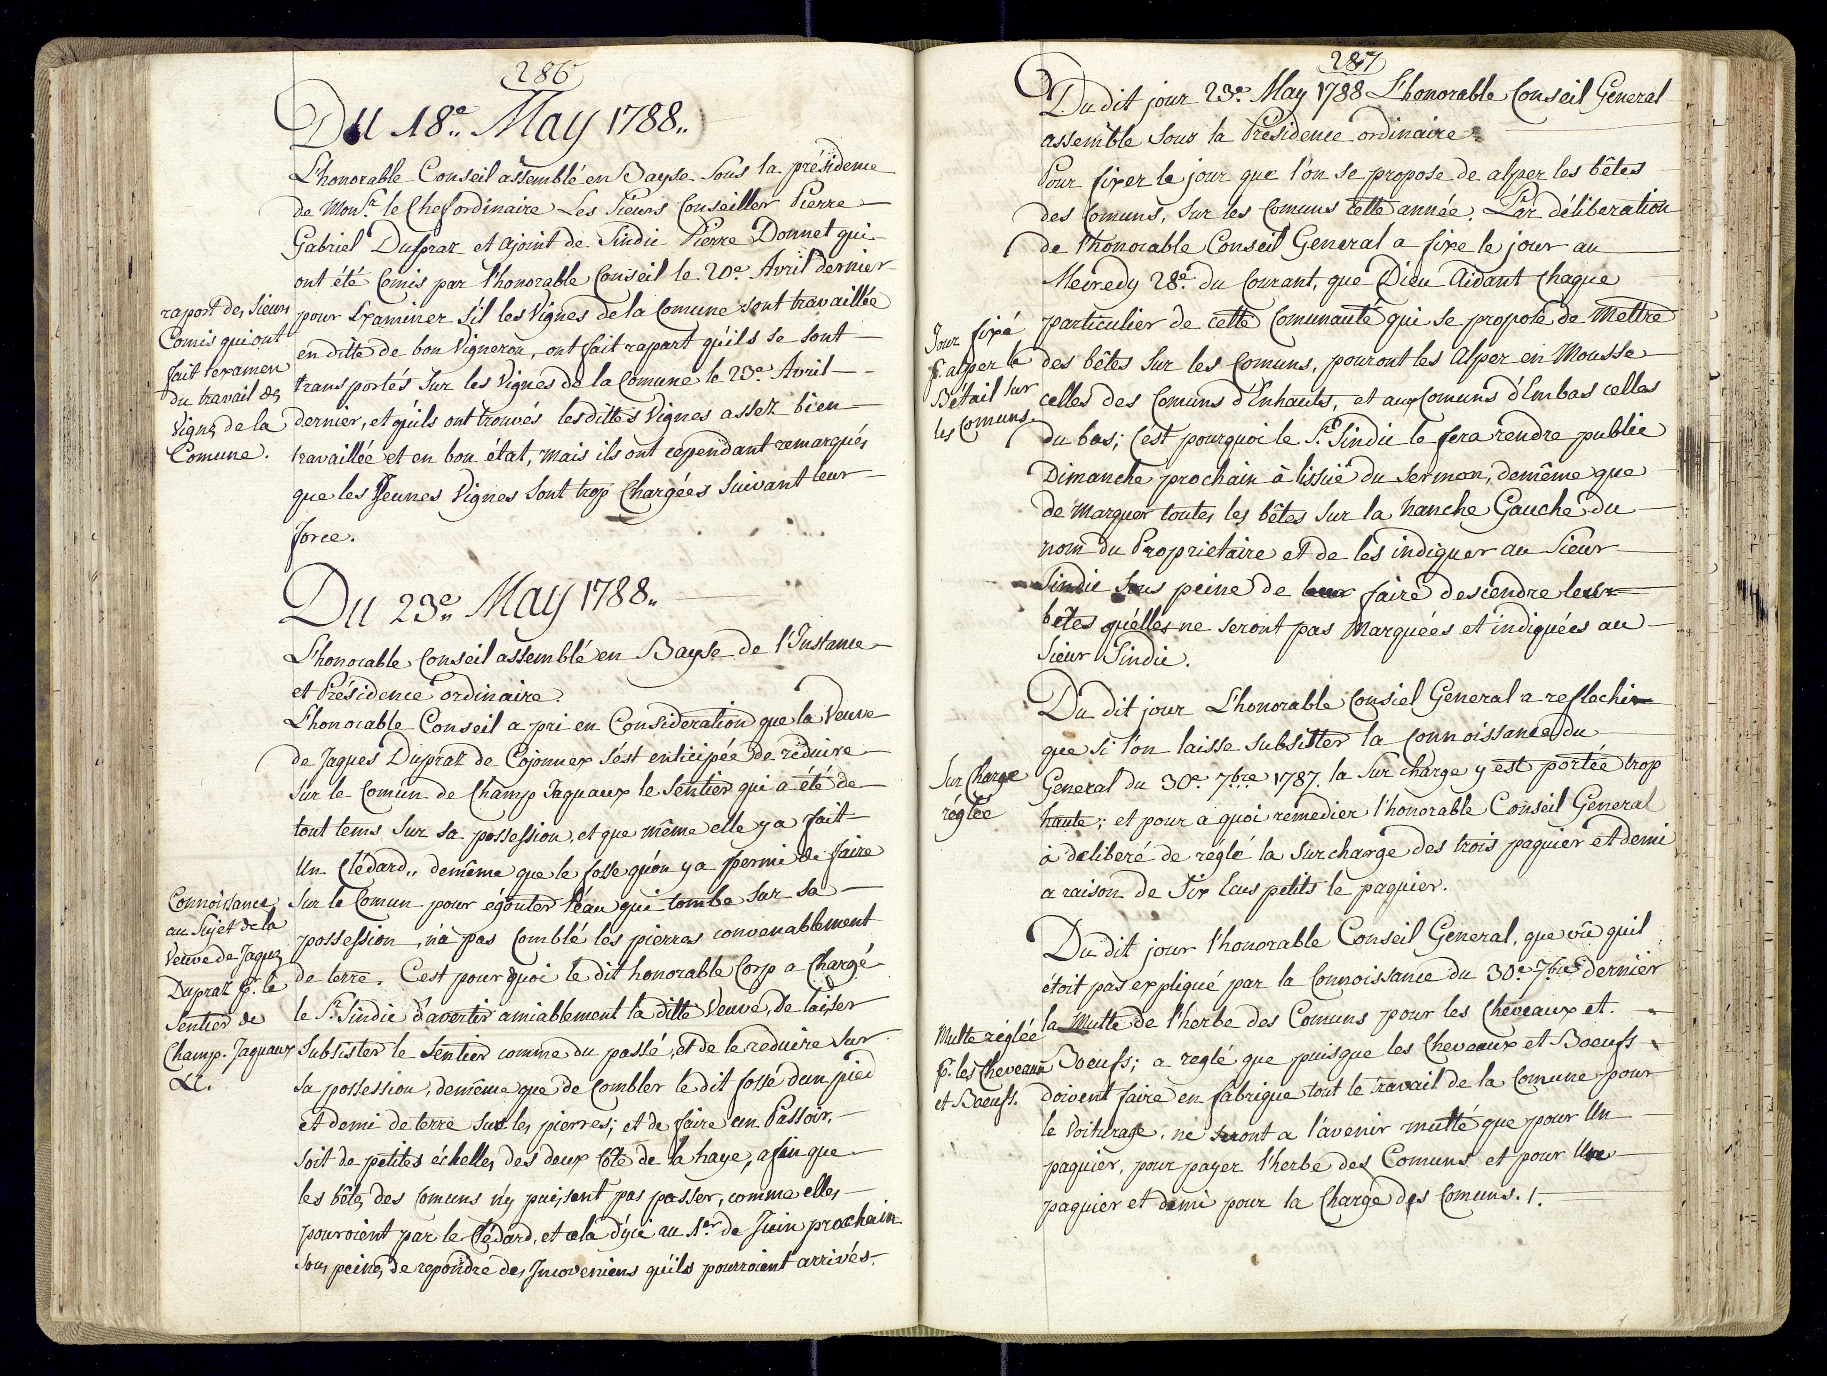 286
Du 18e.. May 1788..
L'honorable Conseil assemblé en Bayse Sous la présidence
de Monsr. le Chef ordinaire Les Sieurs Conseiller Pierre
Gabriel Dupraz et ajoint de Sindic Pierre Donnet qui
ont été Comis par l'honorable Conseil le 20e. Avril dernier
pour Examiner S'il les Vignes de la Comune sont travaillée
en ditte de bon Vigneron, ont fait raport qu'ils se sont
transportés Sur les Vignes de la Comune le 23e. Avril
dernier, et qu'ils ont trouvés lesdittes Vignes assez bien
travaillée et en bon état, mais ils ont cependant remarqués
que les Jeunes Vignes Sont trop Chargées Suivant leur
force.
raport des Sieurs
Comis qui ont
fait l'examen
du travail des
Vignes de la
Comune.
Du 23e.. May 1788..
L'honorable Conseil assemblé en Bayse de l'Instance
et Présidence ordinaire.
L'honorable Conseil a pri en Consideration que la Veuve
de Jaques Dupraz de Cojonnex s'est enticipée de réduire
Sur le Comun de Champ Jaquaux le Sentier qui a été de
tout tems Sur sa possession, et que même elle y a fait
Un Clédard,, demême que le fosse qu'on y a permi de faire
Sur le Comun pour égouter l'éau qui tombe sur sa
possession, n'a pas Comblé les pierres convenablement
de terre. C'est pourquoi le dit honorable Corp a Chargé
le Sr. Sindic d'avertir amiablement la ditte Veuve, de laiser
Subsister le Sentier comme du passé, et de le reduire Sur
sa possession, demême que de Combler le dit fossé d'un pied
et demi de terre Sur les pierres; et de faire un Passoir,
soit de petites échelles des deux Côté de la haye, afin que
les bêtes des Comuns n'y puissent pas passer, comme elles
pouroient par le Clédard, et cela d'yci au 1er. de Juin prochain
Sous peines de repondre des Inconveniens qu'ils pourroient arrivés.
Connoissance
au Sujet de la
Veuve de Jaques
Dupraz pr. le
Sentier de
Champ. Jaquaux
&c.
287
Du dit jour 23e. May 1788 L'honorable Conseil General
assemble Sous la Présidence ordinaire
Pour fixer le jour que l'on se propose de alper les bêtes
des Comuns, Sur les Comuns cette année. Par déliberation
de l'honorable Conseil General a fixe le jour au
Meiredy 28e. du Courant, que Dieu Aidant Chaque
particulier de cette Comunauté qui se propose de Mettre
des bêtes Sur les Comuns, pouront les Alper en Mousse
celles des Comuns d'Enhauts, et aux Comuns d'Embas celles
du bas; C'est pourquoi le Sr. Sindic le fera rendre public
Dimanche prochain à lissüe du Sermon, demême que
de Marquer toutes les bêtes Sur la hanche Gauche du
nom du Proprietaire et de les indiquer au Sieur
Sindic Sous peine de faire descendre leur
bêtes qu'elles ne seront pas Marquées et indiquées au
Sieur Sindic.
Jour fixé
pr. alper le
Bétail Sur
les Comuns.
Du dit jour L'honorable Consiel General a reflechi
que si l'on laisse subsister la Connoissance du
General du 30e. 7bre. 1787. la Sur charge y est portée trop
haute; et pour a quoi remedier l'honorable Conseil General
à deliberé de réglé la Surcharge des trois paquier et demi
a raison de Six Ecus petits le paquier.
Sur Charge
réglée
Du dit jour l'honorable Conseil General, que vû quil
étoit pas expliqué par la Connoissance du 30e. 7bre. dernier
la Multe de l'herbe des Comuns pour les Cheveaux et.
Boeufs; a reglé que puisque les Cheveaux et Boeufs
doivent faire en fabrique tout le travail de la Comune pour
le Voiturage, ne seront a l'avenir multé que pour Un
paquier, pour payer l'herbe des Comuns et pour Une
paquier et demi pour la Charge des Comuns. /.
Multe réglée
pr. les Cheveaux
et Boeufs.